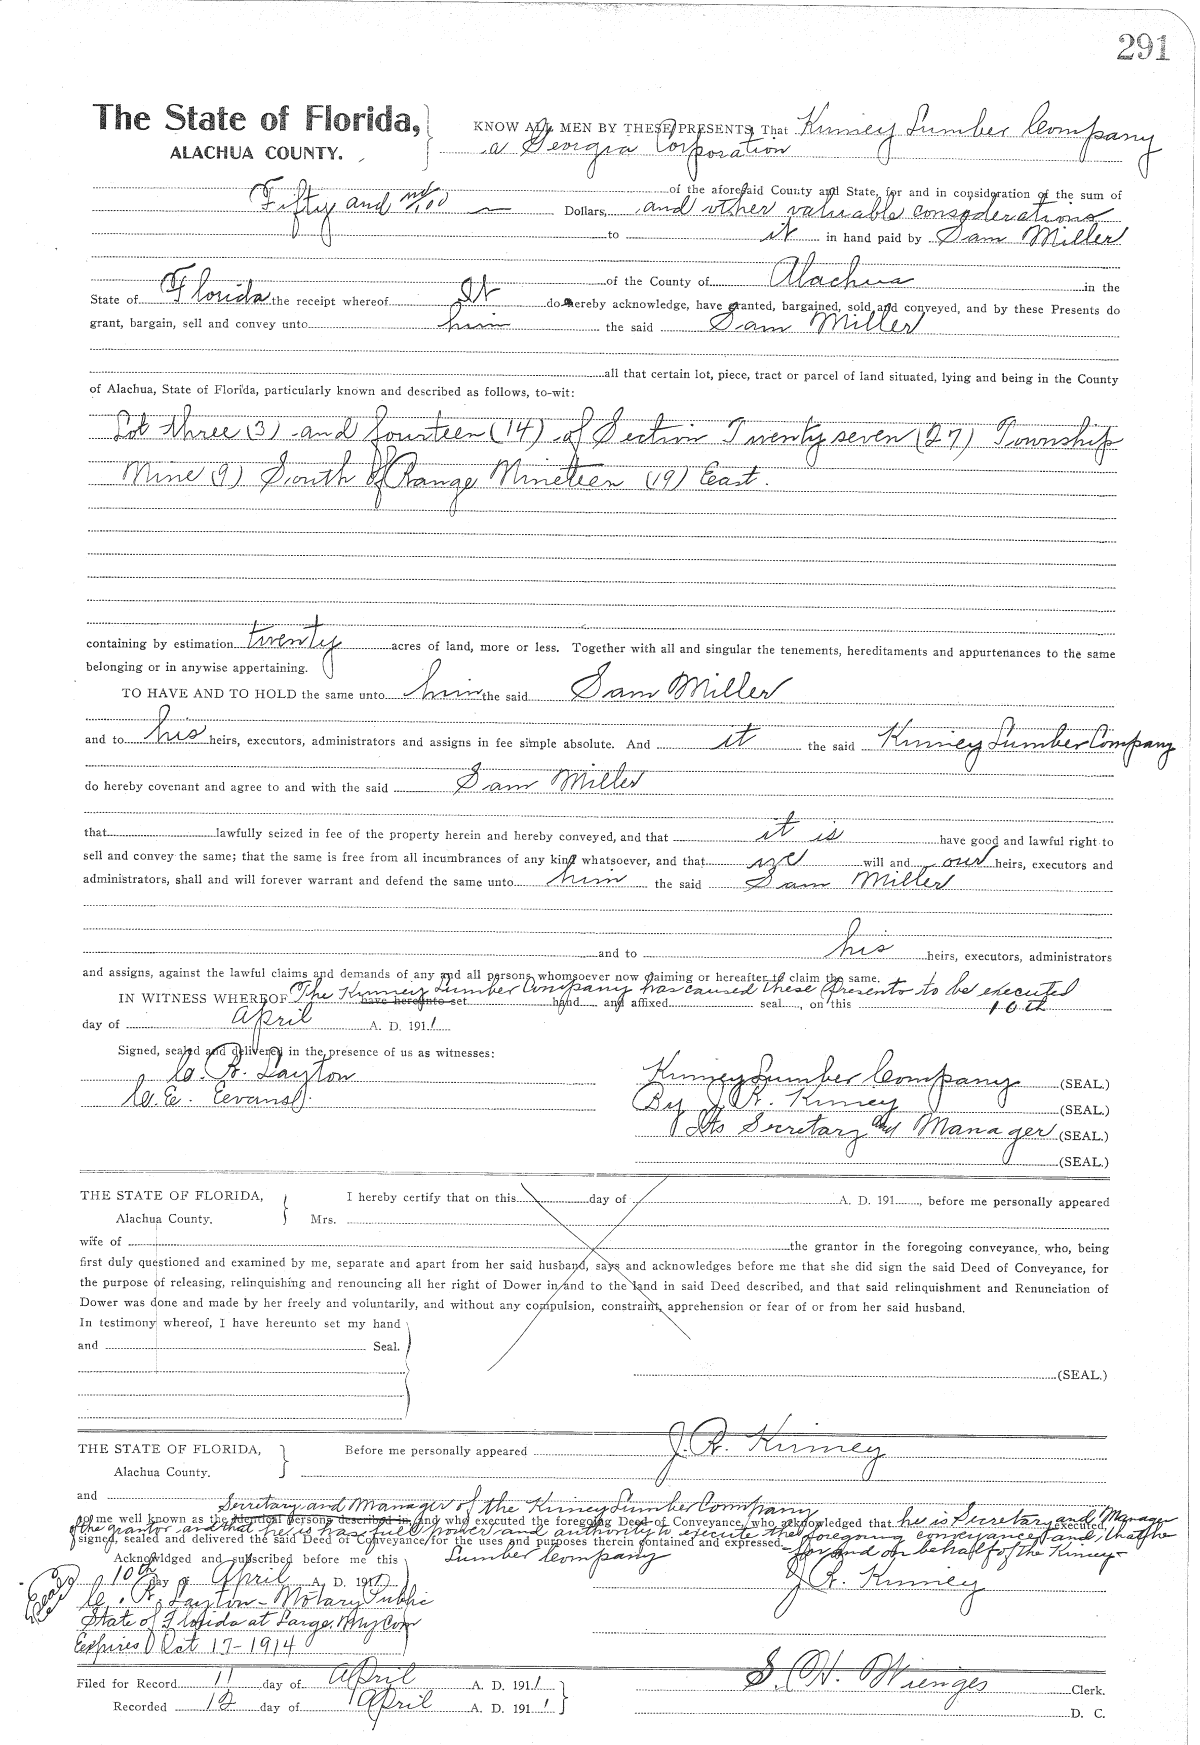 291
The State of Florida,
ALACHUA COUNTY.
KNOW ALL MEN BY THESE PRESENTS, That Kinney Lumber Company
a Georgia Corporation
of the aforesaid County and State, for and in consideration of the sum of
Fifty and no/100 — Dollars, and other valuable considerations
to it in hand paid by Sam Miller
of the County of Alachua in the
State of Florida the receipt whereof It do hereby acknowledge, have granted, bargained, sold and conveyed, and by these Presents do
grant, bargain, sell and convey unto him the said Sam Miller
all that certain lot, piece, tract or parcel of land situated, lying and being in the County
of Alachua, State of Florida, particularly known and described as follows, to-wit:
Lot three (3) and fourteen (14) of Section Twenty seven (27) Township
Nine (9) South of Range Nineteen (19) East.
containing by estimation twenty acres of land, more or less. Together with all and singular the tenements, hereditaments and appurtenances to the same
belonging or in anywise appertaining.
TO HAVE AND TO HOLD the same unto him the said Sam Miller
and to his heirs, executors, administrators and assigns in fee simple absolute. And it the said Kinney Lumber Company
do hereby covenant and agree to and with the said Sam Miller
that lawfully seized in fee of the property herein and hereby conveyed, and that it is have good and lawful right to
sell and convey the same; that the same is free from all incumbrances of any kind whatsoever, and that we will and our heirs, executors and
administrators, shall and will forever warrant and defend the same unto him the said Sam Miller
and to his heirs, executors, administrators
and assigns, against the lawful claims and demands of any and all persons whomsoever now claiming or hereafter to claim the same.
IN WITNESS WHEREOF The Kinney Lumber Company has caused these presents to be executed
have hereunto set hand and affixed seal, on this 10th
day of April A. D. 1911
Signed, sealed and delivered in the presence of us as witnesses:
C. R. Layton
C. E. Eevans
Kinney Lumber Company (SEAL.)
By J. R. Kinney (SEAL.)
Its Secretary and Manager (SEAL.)
(SEAL.)
THE STATE OF FLORIDA,
Alachua County.
I hereby certify that on this day of A. D. 191 , before me personally appeared
Mrs.
wife of the grantor in the foregoing conveyance, who, being
first duly questioned and examined by me, separate and apart from her said husband, says and acknowledges before me that she did sign the said Deed of Conveyance, for
the purpose of releasing, relinquishing and renouncing all her right of Dower in and to the land in said Deed described, and that said relinquishment and Renunciation of
Dower was done and made by her freely and voluntarily, and without any compulsion, constraint, apprehension or fear of or from her said husband.
In testimony whereof, I have hereunto set my hand
and Seal.
(SEAL.)
THE STATE OF FLORIDA,
Alachua County.
Before me personally appeared J. R. Kinney
and Secretary and Manager of the Kinney Lumber Company
to me well known as the identical persons described in, and who executed the foregoing Deed of Conveyance, who acknowledged that he is Secretary and Manager executed,
of the grantor and that he is has full power and authority to execute the foregoing conveyance and, that he
signed, sealed and delivered the said Deed of Conveyance for the uses and purposes therein contained and expressed. for and on behalf of the Kinney
Lumber Company
Acknowldged and subscribed before me this
10th day of April A. D. 1911
J. R. Kinney
(Seal)
C. R. Layton - Notary Public
State of Florida at Large. My Com
Expires Oct 17-1914
Filed for Record 11 day of April A. D. 1911
Recorded 12 day of April A. D. 1911
S. H. Wienges Clerk.
D. C.